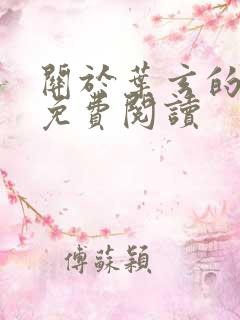 關於葉玄的
免費閱讀
傅蘇穎